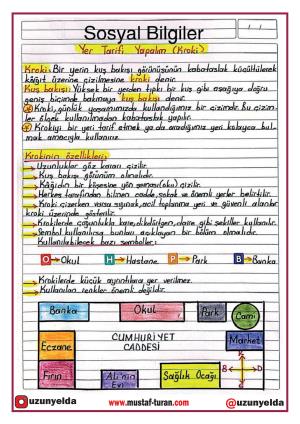 Sosyal Bilgiler
Yer Tarifi Yapalım (Kroki)
Kroki: Bir yerin kuş bakışı görünüşünün kabataslak küçültülerek
kâğıt üzerine çizilmesine kroki denir.
Kuş bakışı: Yüksek bir yerden tıpkı bir kuş gibi aşağıya doğru
geniş biçimde bakmaya kuş bakışı denir.
Kroki, günlük yaşamımızda kullandığımız bir çizimdir. Bu çizim-
ler ölçek kullanılmadan kabataslak yapılır.
Krokiyi bir yeri tarif etmek ya da aradığımız yeri kolayca bul-
mak amacıyla kullanırız.
Krokinin özellikleri;
Uzunluklar göz kararı çizilir.
Kuş bakışı görünüm olmalıdır.
Kâğıdın bir köşesine yön şeması(oku) çizilir.
Herkes tarafından bilinen cadde, sokak ve önemli yerler belirtilir.
Kroki çizerken varsa sığınak, acil toplanma yeri ve güvenli alanlar
kroki üzerinde gösterilir.
Krokilerde çoğunlukla kare, dikdörtgen, daire gibi şekiller kullanılır.
Sembol kullanılırsa bunları açıklayan bir bölüm olmalıdır.
Kullanılabilecek bazı semboller:
O Okul H Hastane P Park B Banka
Krokilerde küçük ayrıntılara yer verilmez.
Kullanılan renkler önemli değildir.
Banka Okul Park Cami
Eczane CUMHURİYET CADDESİ Market
K
B D
G
Fırın Ali'nin Evi Sağlık Ocağı
uzunyelda www.mustaf-turan.com @uzunyelda